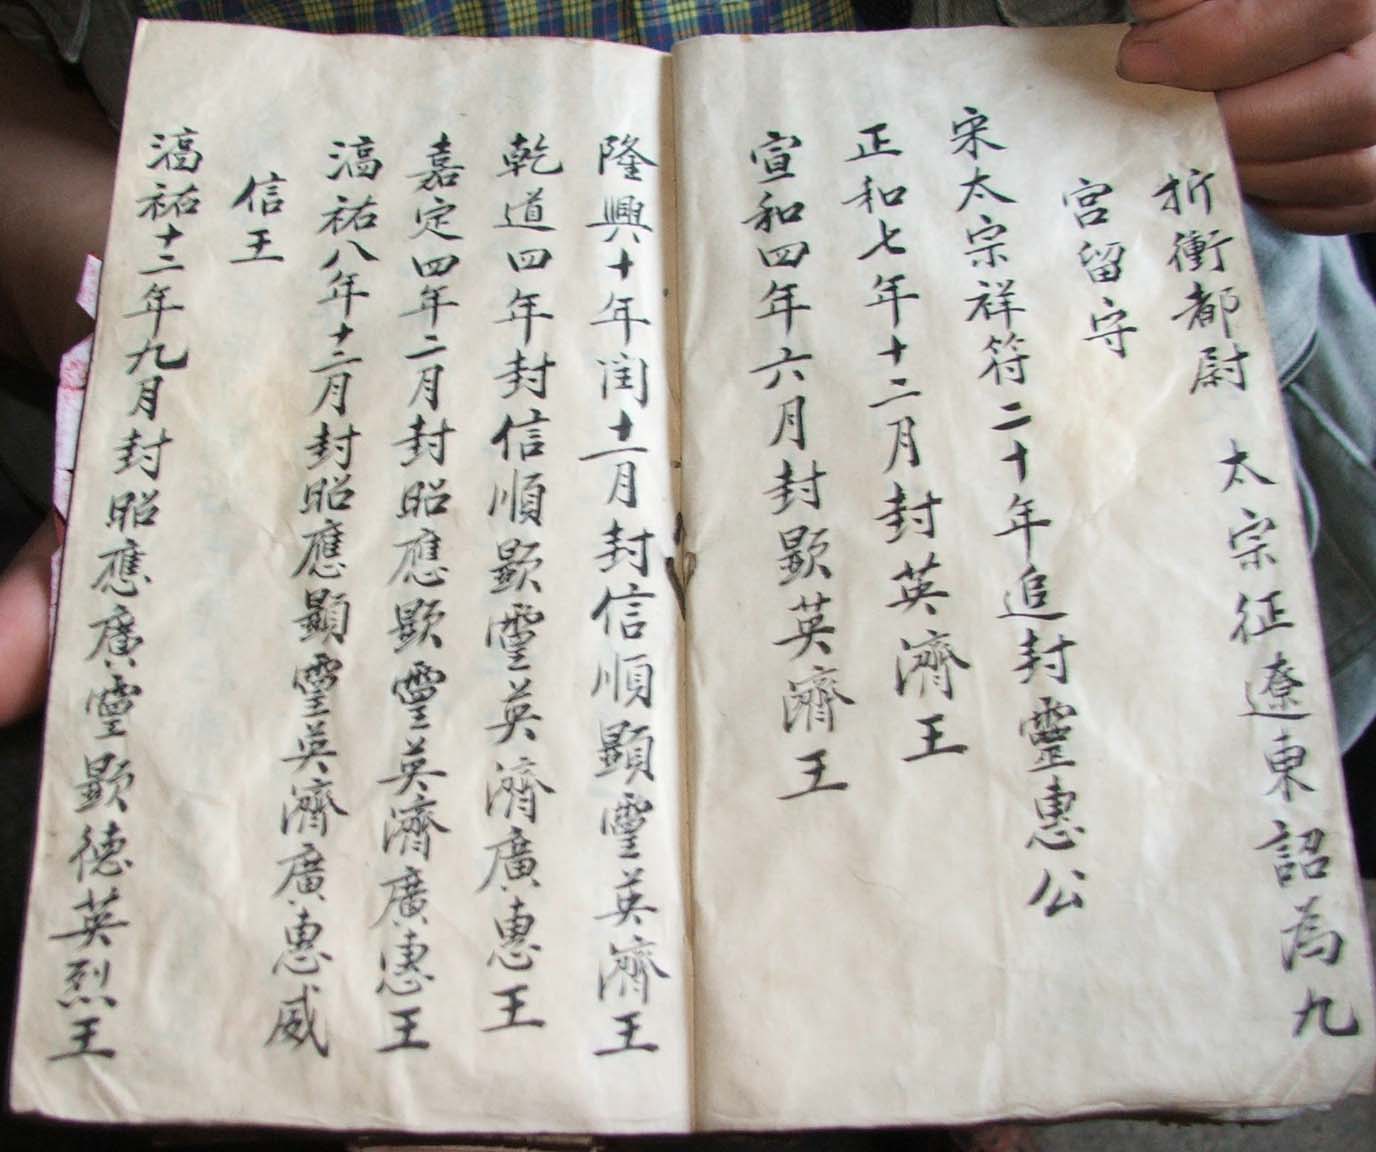 折衝都尉 太宗征遼東詔為九
宮留守
宋太宗祥符二十年追封靈惠公
正和七年十二月封英濟王
宣和四年六月封顯英濟王
隆興十年閏十一月封信順顯靈英濟王
乾道四年封信順顯靈英濟廣惠王
嘉定四年二月封昭應顯靈英濟廣惠王
淳祐八年十二月封昭應顯靈英濟廣惠威
信王
淳祐十二年九月封昭應廣靈顯德英烈王